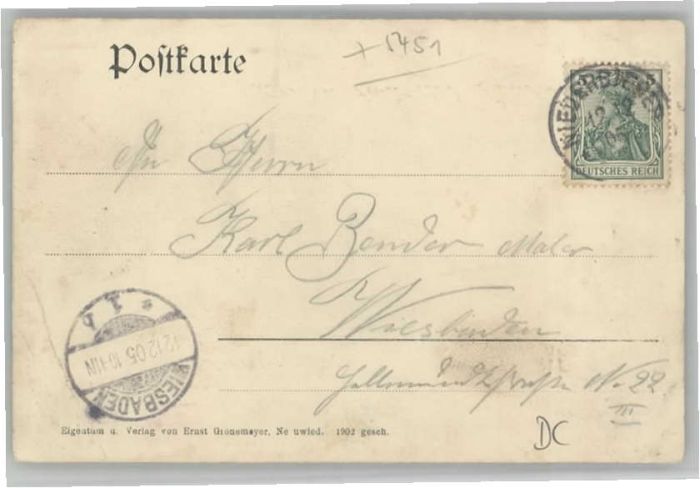 Postkarte
+ 5451
5
12
DEUTSCHES REICH
An Herrn
Karl Bender Maler
Wiesbaden
Hellmundstraße No 22
III
* 1 b
12.12.05.10-11N
WIESBADEN
Eigentum u. Verlag von Ernst Gronemeyer, Neuwied. 1902 gesch.
DC